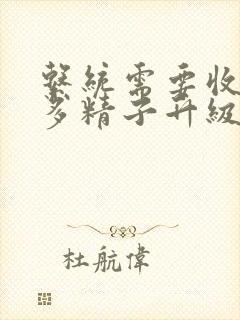 繫統需要收
多精子升級
杜航偉